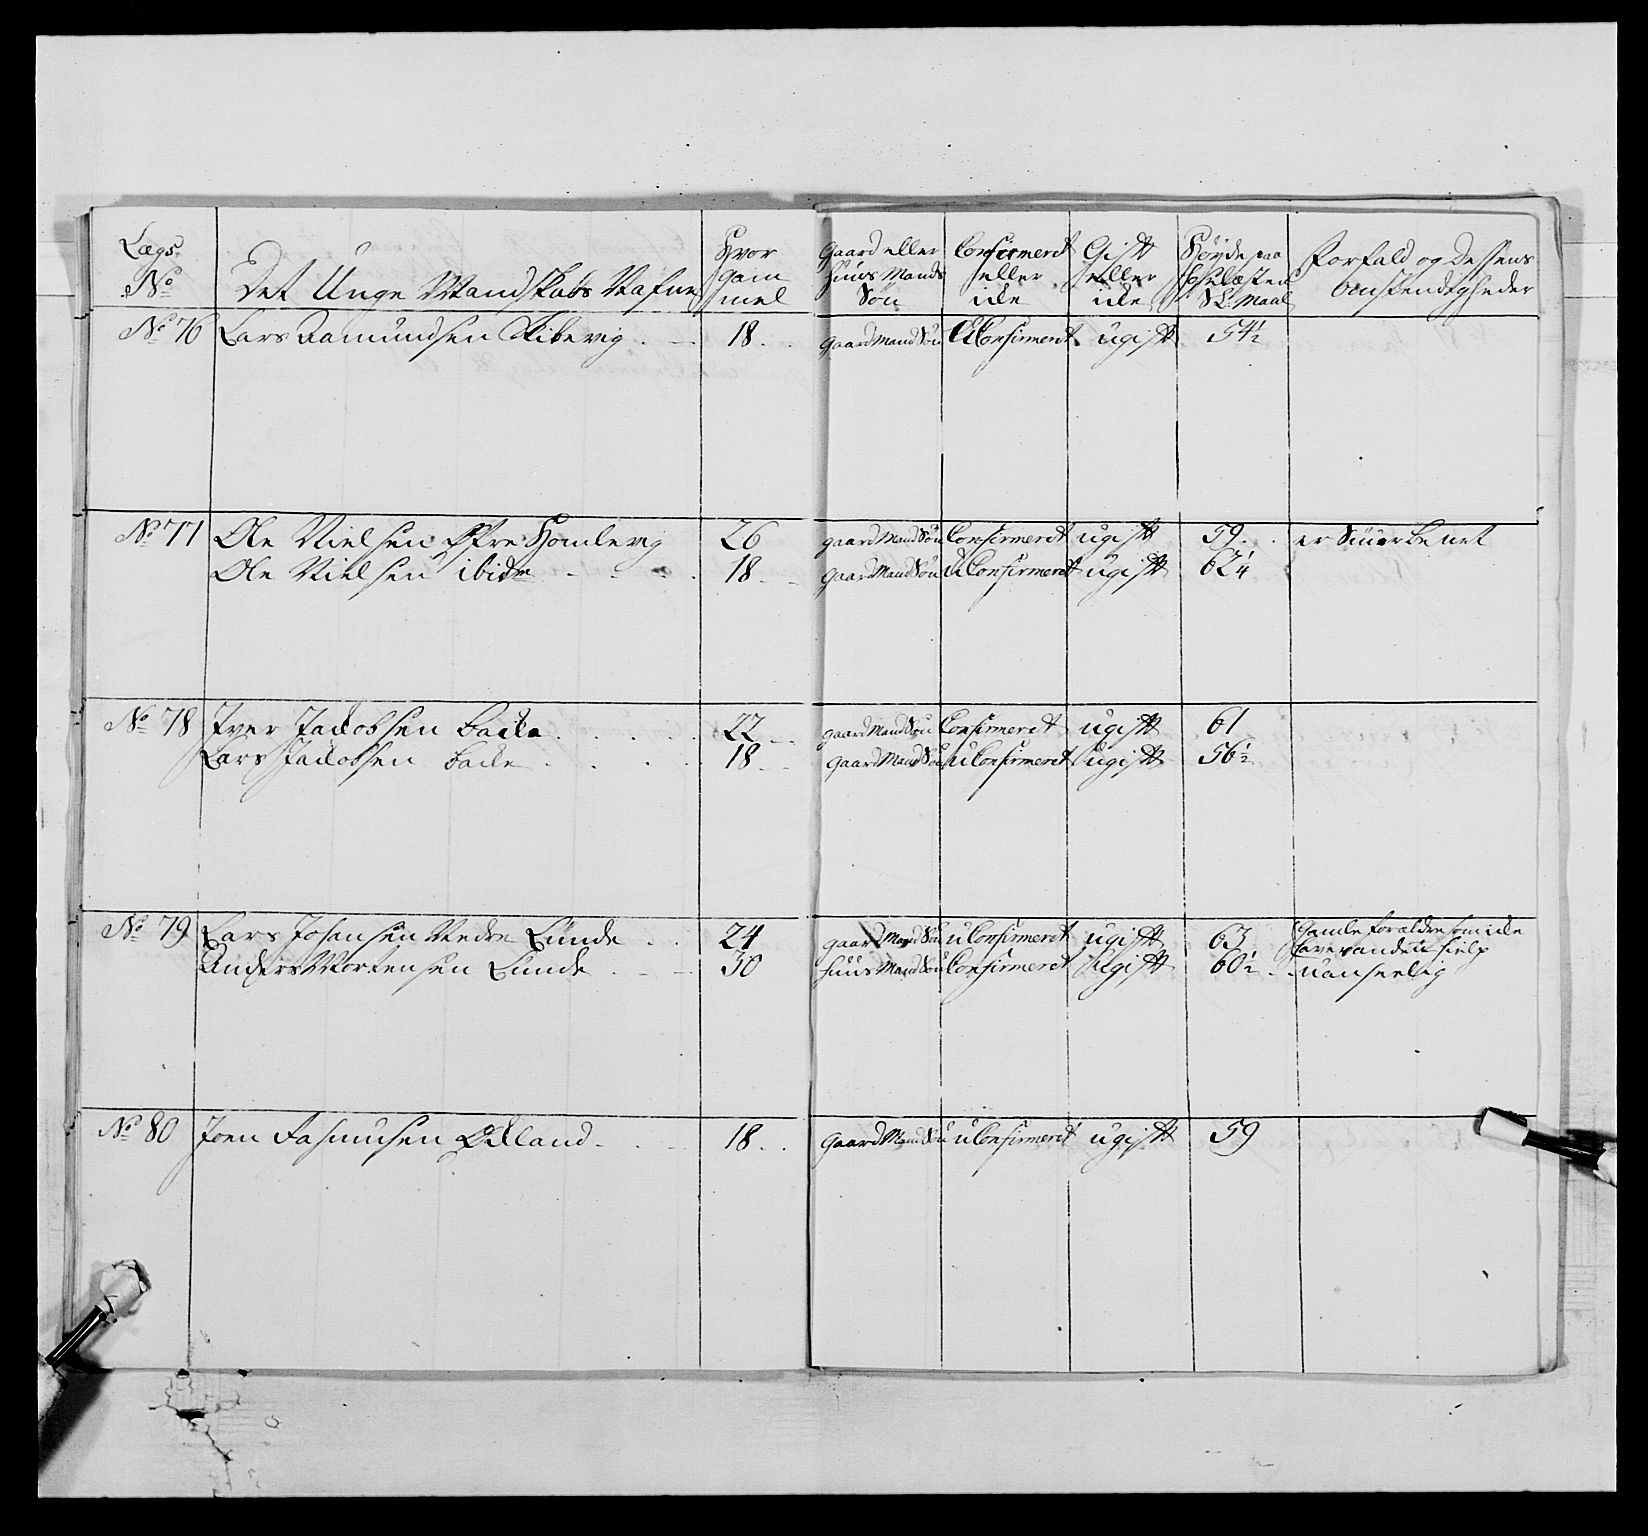 Lægs No | Det Unge Mandskabs Nafne | Hvor gam mel | Gaard eller Huus Mands Søn | Confirmerit eller ide | Gift eller ide | Høyde paa Hoselæsten S L: Maal | Forfald og dessens omstendigheder
No 76 | Lars Aamundsen Skibevig | 18 | gaard Mand Søn | U Confirmerit | ugift | 54½
No 77 | Ole Nielsen Øfre Homlevig | 26 | gaard Mand Søn | Confirmerit | ugift | 59 | er
Ole Nielsen ibidm | 18 | gaard Mand Søn | u Confirmerit | ugift | 62¼
No 78 | Iver Jacobsen Backe | 22 | gaard Mand Søn | Confirmerit | ugift | 61
Lars Jacobsen Backe | 18 | gaard Mand Søn | u Confirmerit | ugift | 56½
No 79 | Lars Johansen Nedre Lunde | 24 | gaard Mand Søn | u Confirmerit | ugift | 63 | Gamle forældre som ide have anden hielp
Anders Mortensen Lunde | 30 | Huus Mand Søn | Confirmerit | ugift | 60½ | uanseelig
No 80 | Joen Rasmusen Ødland | 18 | gaard Mand Søn | u Confirmerit | ugift | 59